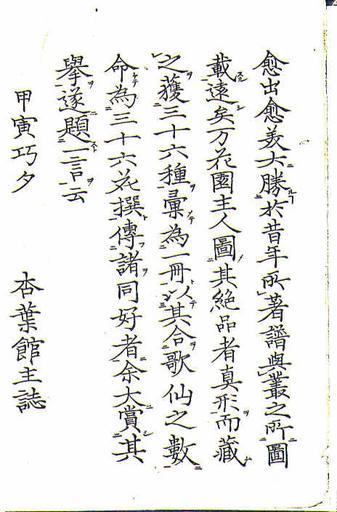 愈出愈美大勝於昔年所著譜與叢之所圖
載遠矣万花園主人圖其絶品者真形而藏
之獲三十六種彙為一冊以其合歌仙之數
命為三十六花撰傳諸同好者余大賞其
擧遂題一言云
甲寅巧夕
杏葉館主誌